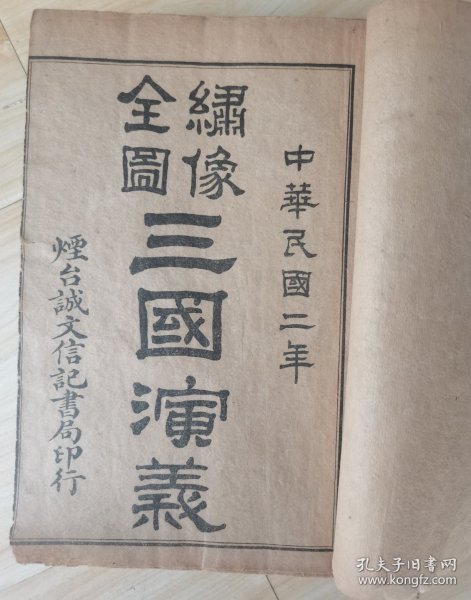 中華民國二年
繡像
全圖
三國演義
煙台誠文信記書局印行
孔夫子旧书网
www.kongfz.com